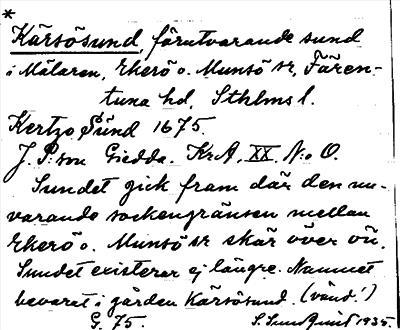 *
Kärsösund, förutvarande sund
i Mälaren, Ekerö o. Munsö sr, Fären-
tuna hd, Sthlms l.
Kertzo Sünd 1675.
J. P:son Giedda. KrA, XX. N:o O.
Sundet gick fram där den nu-
varande sockengränsen mellan
Ekerö o. Munsö sr skär över ön.
Sundet existerar ej längre. Namnet
bevarat i gården Kärsösund. (vänd!)
G. 75. S. Sundquist 1935.